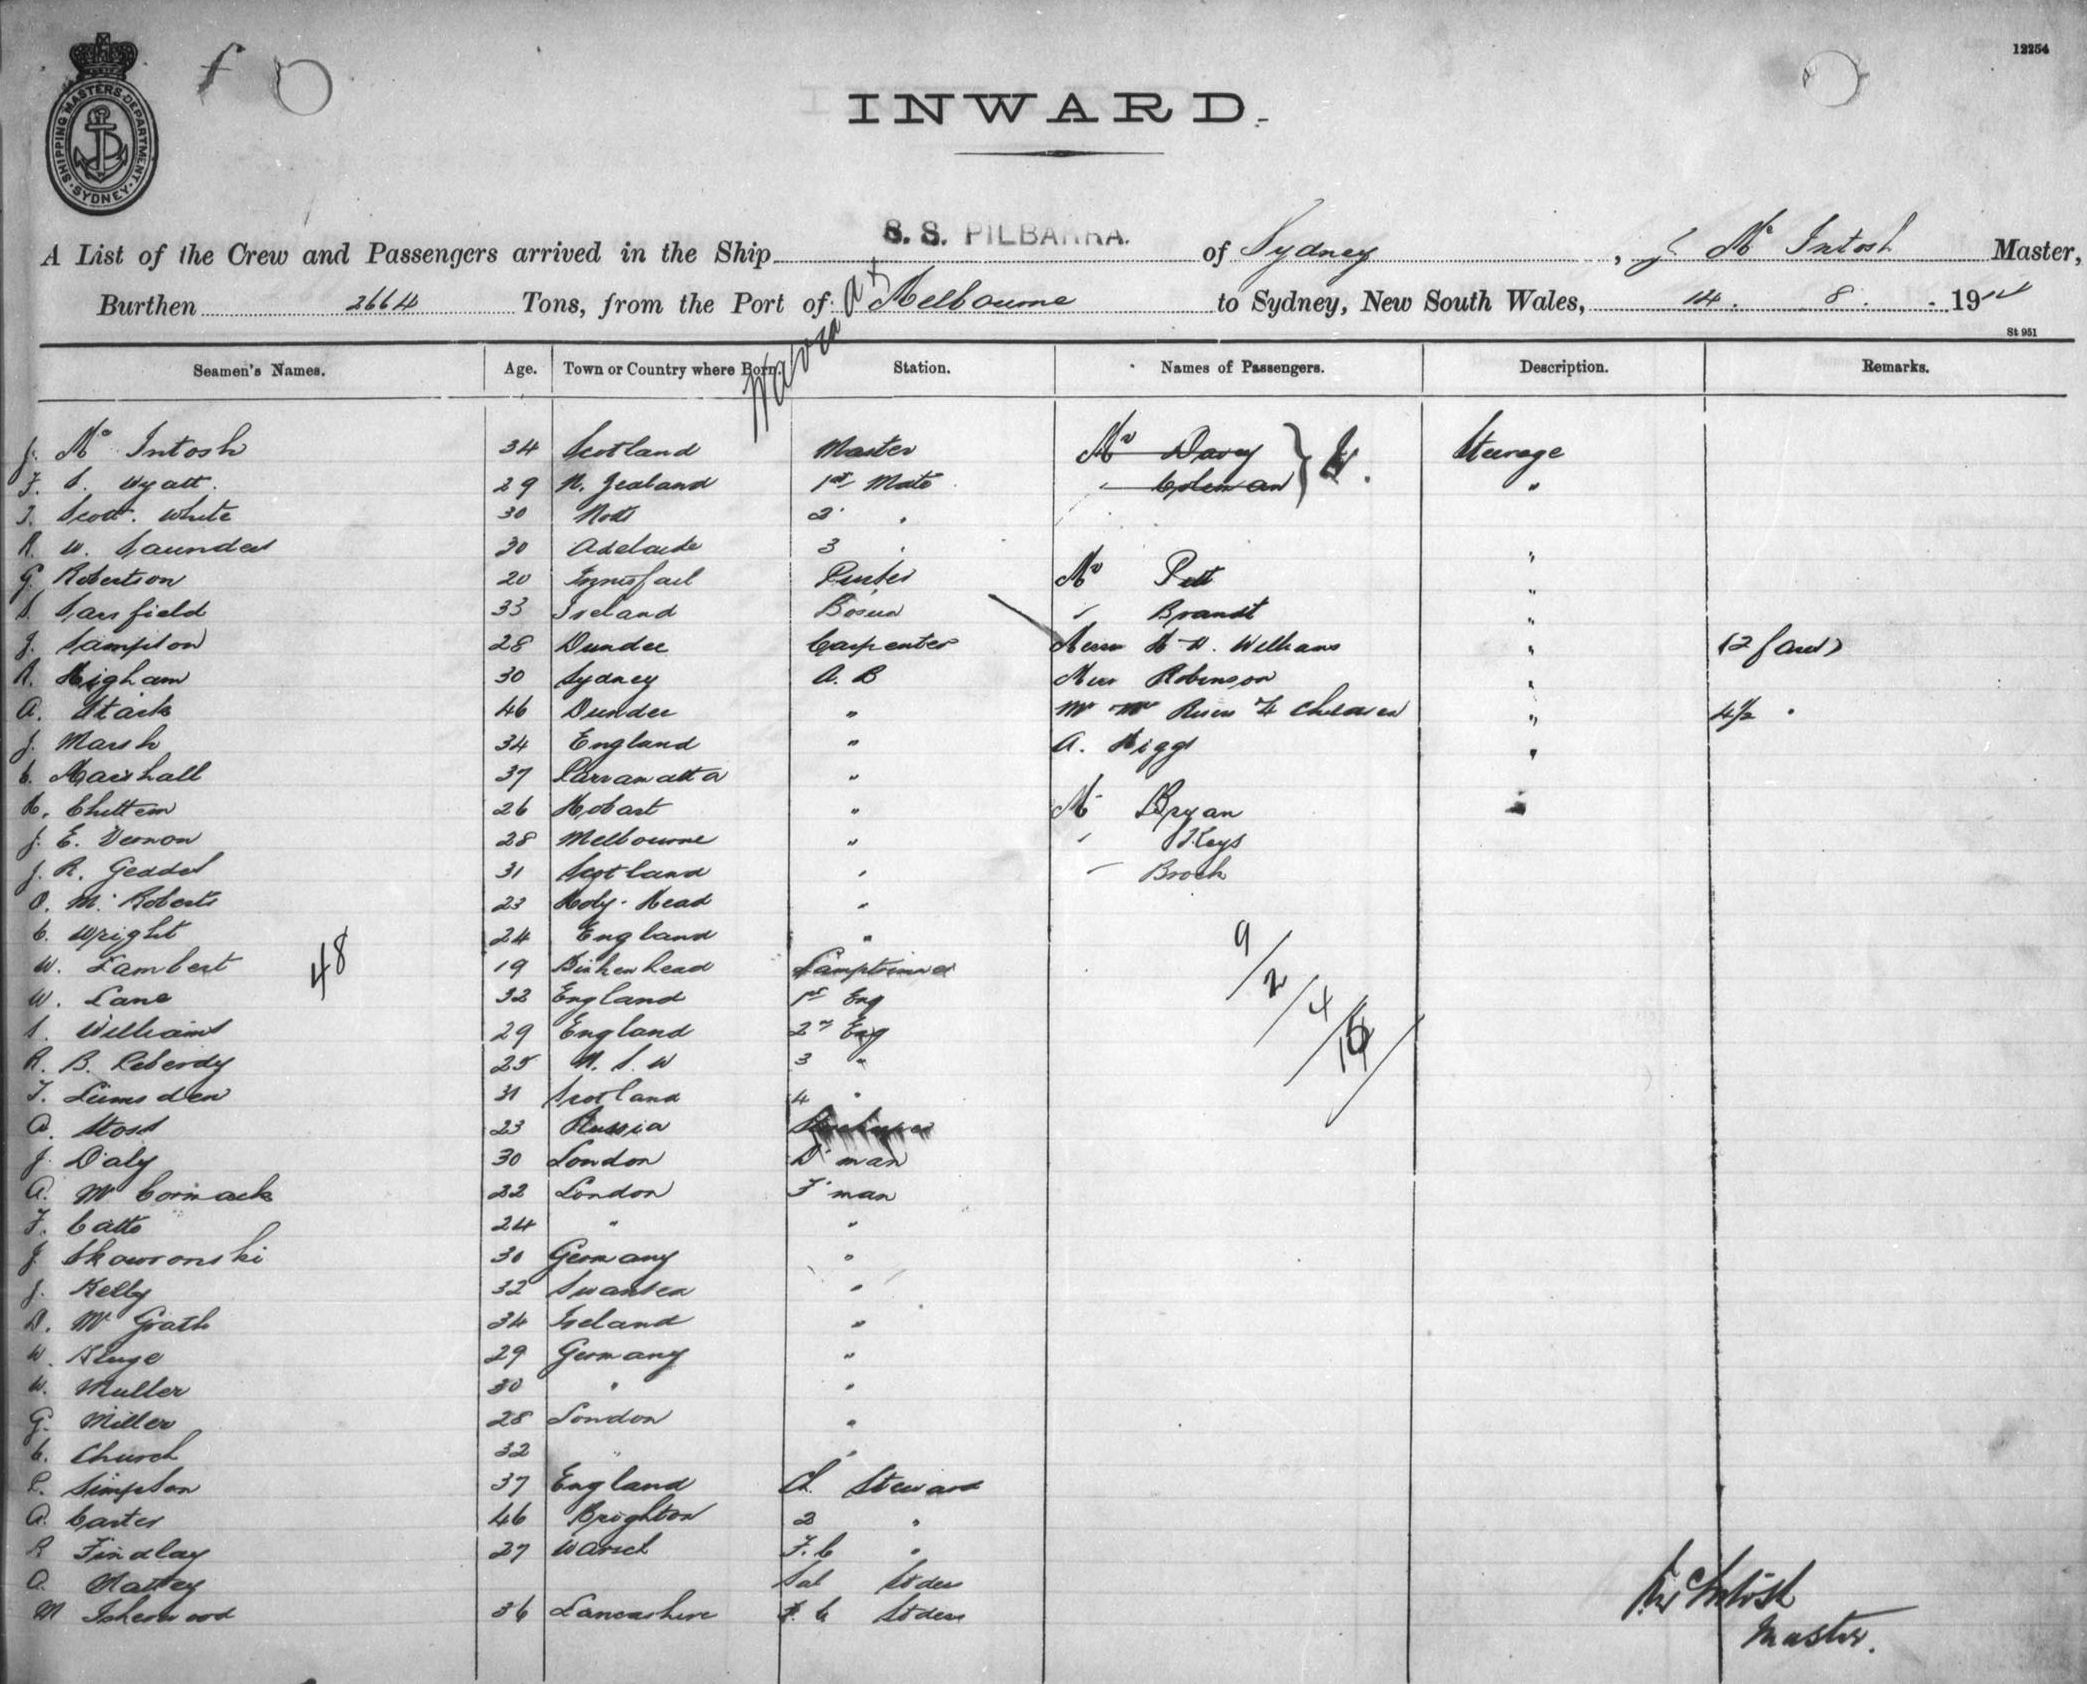 SHIPPING MASTERS DEPARTMENT. SYDNEY.
12254
INWARD.
A List of the Crew and Passengers arrived in the Ship S. S. PILBARRA. of Sydney, J Mc Intosh Master,
Burthen 2664 Tons, from the Port of Melbourne to Sydney, New South Wales, 14. 8. 19
St 951
Seamen's Names. Age. Town or Country where Born. Station. Names of Passengers. Description. Remarks.
J. Mc Intosh 34 Scotland Master Mr Davey Steerage
F. S. Wyatt. 29 N. Zealand 1st Mate " Coleman "
Scott. White 30 Notts 2 "
R. W. Saunders 30 Adelaide 3 " "
G. Robertson 20 Innisfail Purser Mr Pett "
S. Sarsfield 33 Ireland Bosun " Brandt "
J. Sampson 28 Dundee Carpenter Williams " (2 fares)
R. Higham 30 Sydney A. B Robinson "
A. Stark 46 Dundee " 4 Children " 4/2 "
J. Marsh 34 England " A. Higgs "
C. Marshall 37 Parramatta "
R. Chittem 26 Hobart " Mr Bryan "
J. E. Vernon 28 Melbourne " " Keys
J. R. Geddes 31 Scotland " " Brock
O. M. Roberts 23 Holy-Head "
C. Wright 24 England "
W. Lambert 19 Birkenhead Lamptrimmer
48
W. Lane 32 England 1st Eng
9/2/4/15
S. Williams 29 England 2nd Eng
R. B. Peberdy 25 N. S. W 3 "
T. Lumsden 31 Scotland 4 "
A. Stoss 23 Russia
J. Daly 30 London D'man
A. Mc Cormack 22 London F'man
F. Catto 24 " "
J. Skowronski 30 Germany "
J. Kelly 32 Swansea "
D. Mc Grath 34 Ireland "
W. Kluge 29 Germany "
W. Muller 30 " "
G. Miller 28 London "
C. Church 32 " "
P. Simpson 37 England Ch. Steward
A. Carter 46 Brighton 2 "
R Findlay 27 F. C "
A. Sal Stdess
M Isherwood 36 Lancashire F. C Stdess
Mc Intosh
Master.